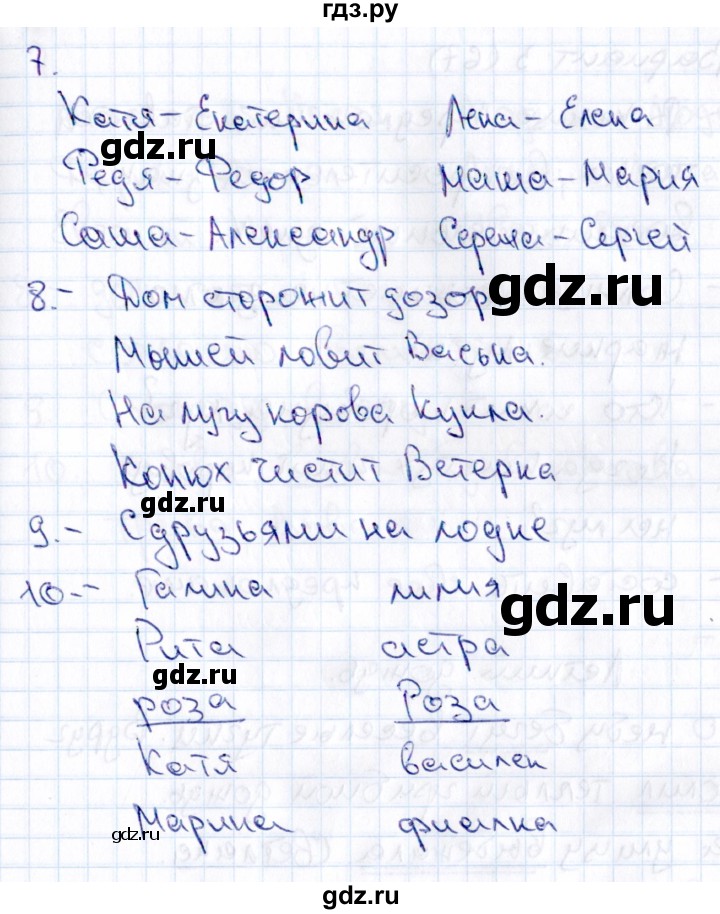 гдз.ру
7.
Катя - Екатерина Лена - Елена
Федя - Федор Маша - Мария
Саша - Александр Сережа - Сергей
8.- Дом сторожит дозор
Мышей ловит Васька.
На лугу корова Кукла.
Конюх чистит Ветерка
9.- С друзьями на лодке
10.- Галина лилия
Рита астра
роза Роза
Катя василек
Марина фиалка
gdz.ru
gdz.ru
gdz.ru
gdz.ru
gdz.ru
gdz.ru
gdz.ru
gdz.ru